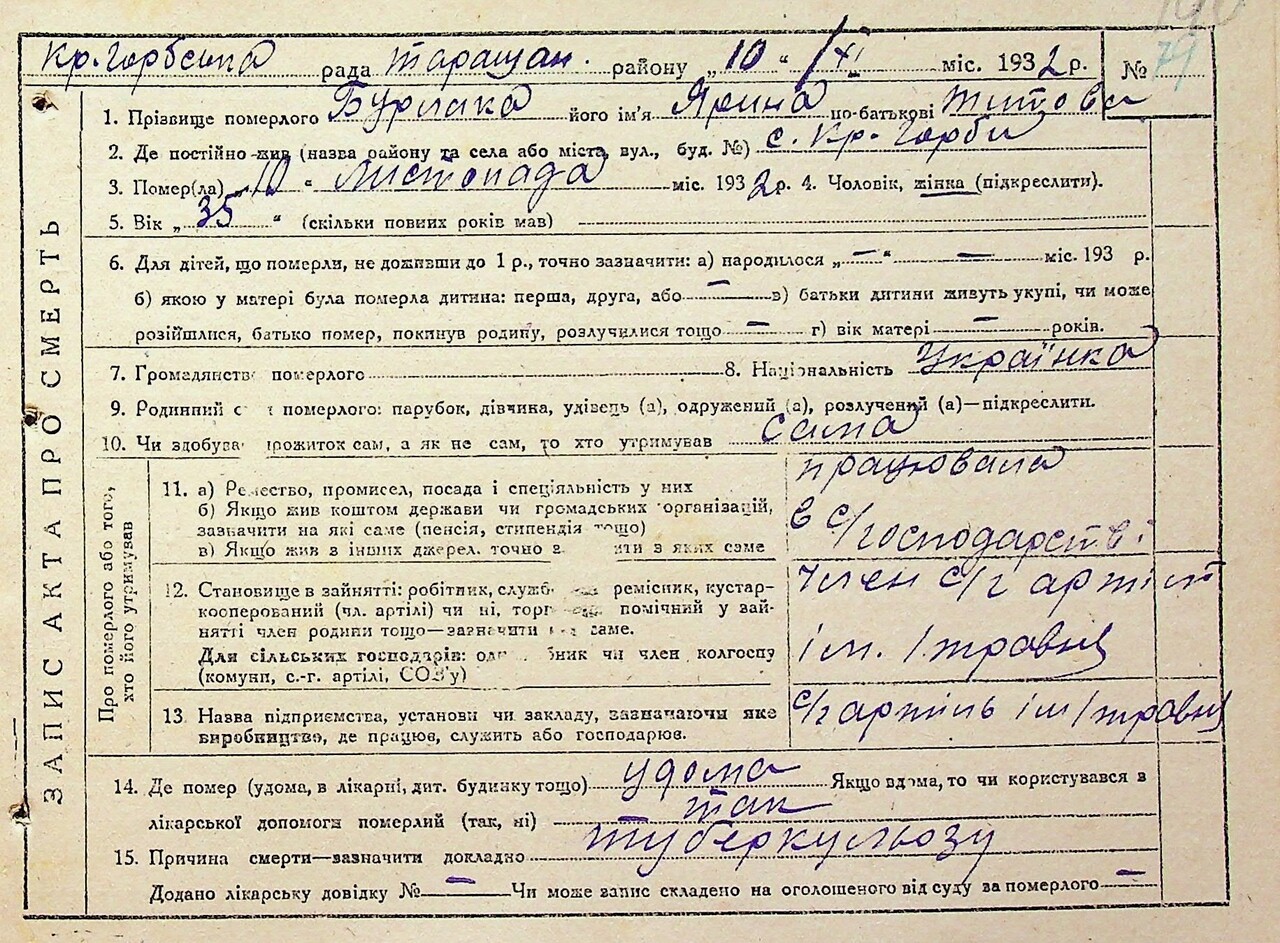 Кр. Горбська рада Таращан. району „10“ /XI міс. 1932 р. № 79
1. Прізвище померлого Бурлака його ім'я Ярина по-батькові Титова
2. Де постійно жив (назва району та села або міста, вул., буд. №) с. Кр-Горби
3. Помер(ла) „10“ Листопада міс. 1932 р. 4. Чоловік, жінка (підкреслити).
5. Вік „35“ (скільки повних років мав)
6. Для дітей, що померли, не доживши до 1 р., точно зазначити: а) народилося „—“ — міс. 193 р.
б) якою у матері була померла дитина: перша, друга, або — в) батьки дитини живуть укупі, чи може
розійшлися, батько помер, покинув родину, розлучилися тощо — г) вік матері — років.
7. Громадянств померлого 8. Національність Українка
9. Родинний с померлого: парубок, дівчина, удівець (а), одружений (а), розлучений (а)—підкреслити.
10. Чи здобува прожиток сам, а як не сам, то хто утримував сама
ЗАПИС АКТА ПРО СМЕРТЬ
Про померлого або того,
хто його утримував
11. а) Ремество, промисел, посада і спеціяльність у них
б) Якщо жив коштом держави чи громадських організацій,
зазначити на які саме (пенсія, стипендія тощо)
в) Якщо жив з інших джерел, точно з яких саме
працювала
в с/господарстві
12. Становище в зайнятті: робітник, служб ремісник, кустар-
кооперований (чл. артілі) чи ні, торг помічний у зай-
нятті член родини тощо—зазначити саме.
Для сільських господарів: од бник чи член колгоспу
(комуни, с.-г. артілі, СОЗ'у)
член с/г артілі
ім. 1 травня
13. Назва підприємства, установи чи закладу, зазначаючи яке
виробництво, де працює, служить або господарює.
с/г артіль ім 1 травня
14. Де помер (удома, в лікарні, дит. будинку тощо) удома Якщо вдома, то чи користувався в
лікарської допомоги померлий (так, ні) так
15. Причина смерти—зазначити докладно туберкульозу
Додано лікарську довідку № — Чи може запис складено на оголошеного від суду за померлого —